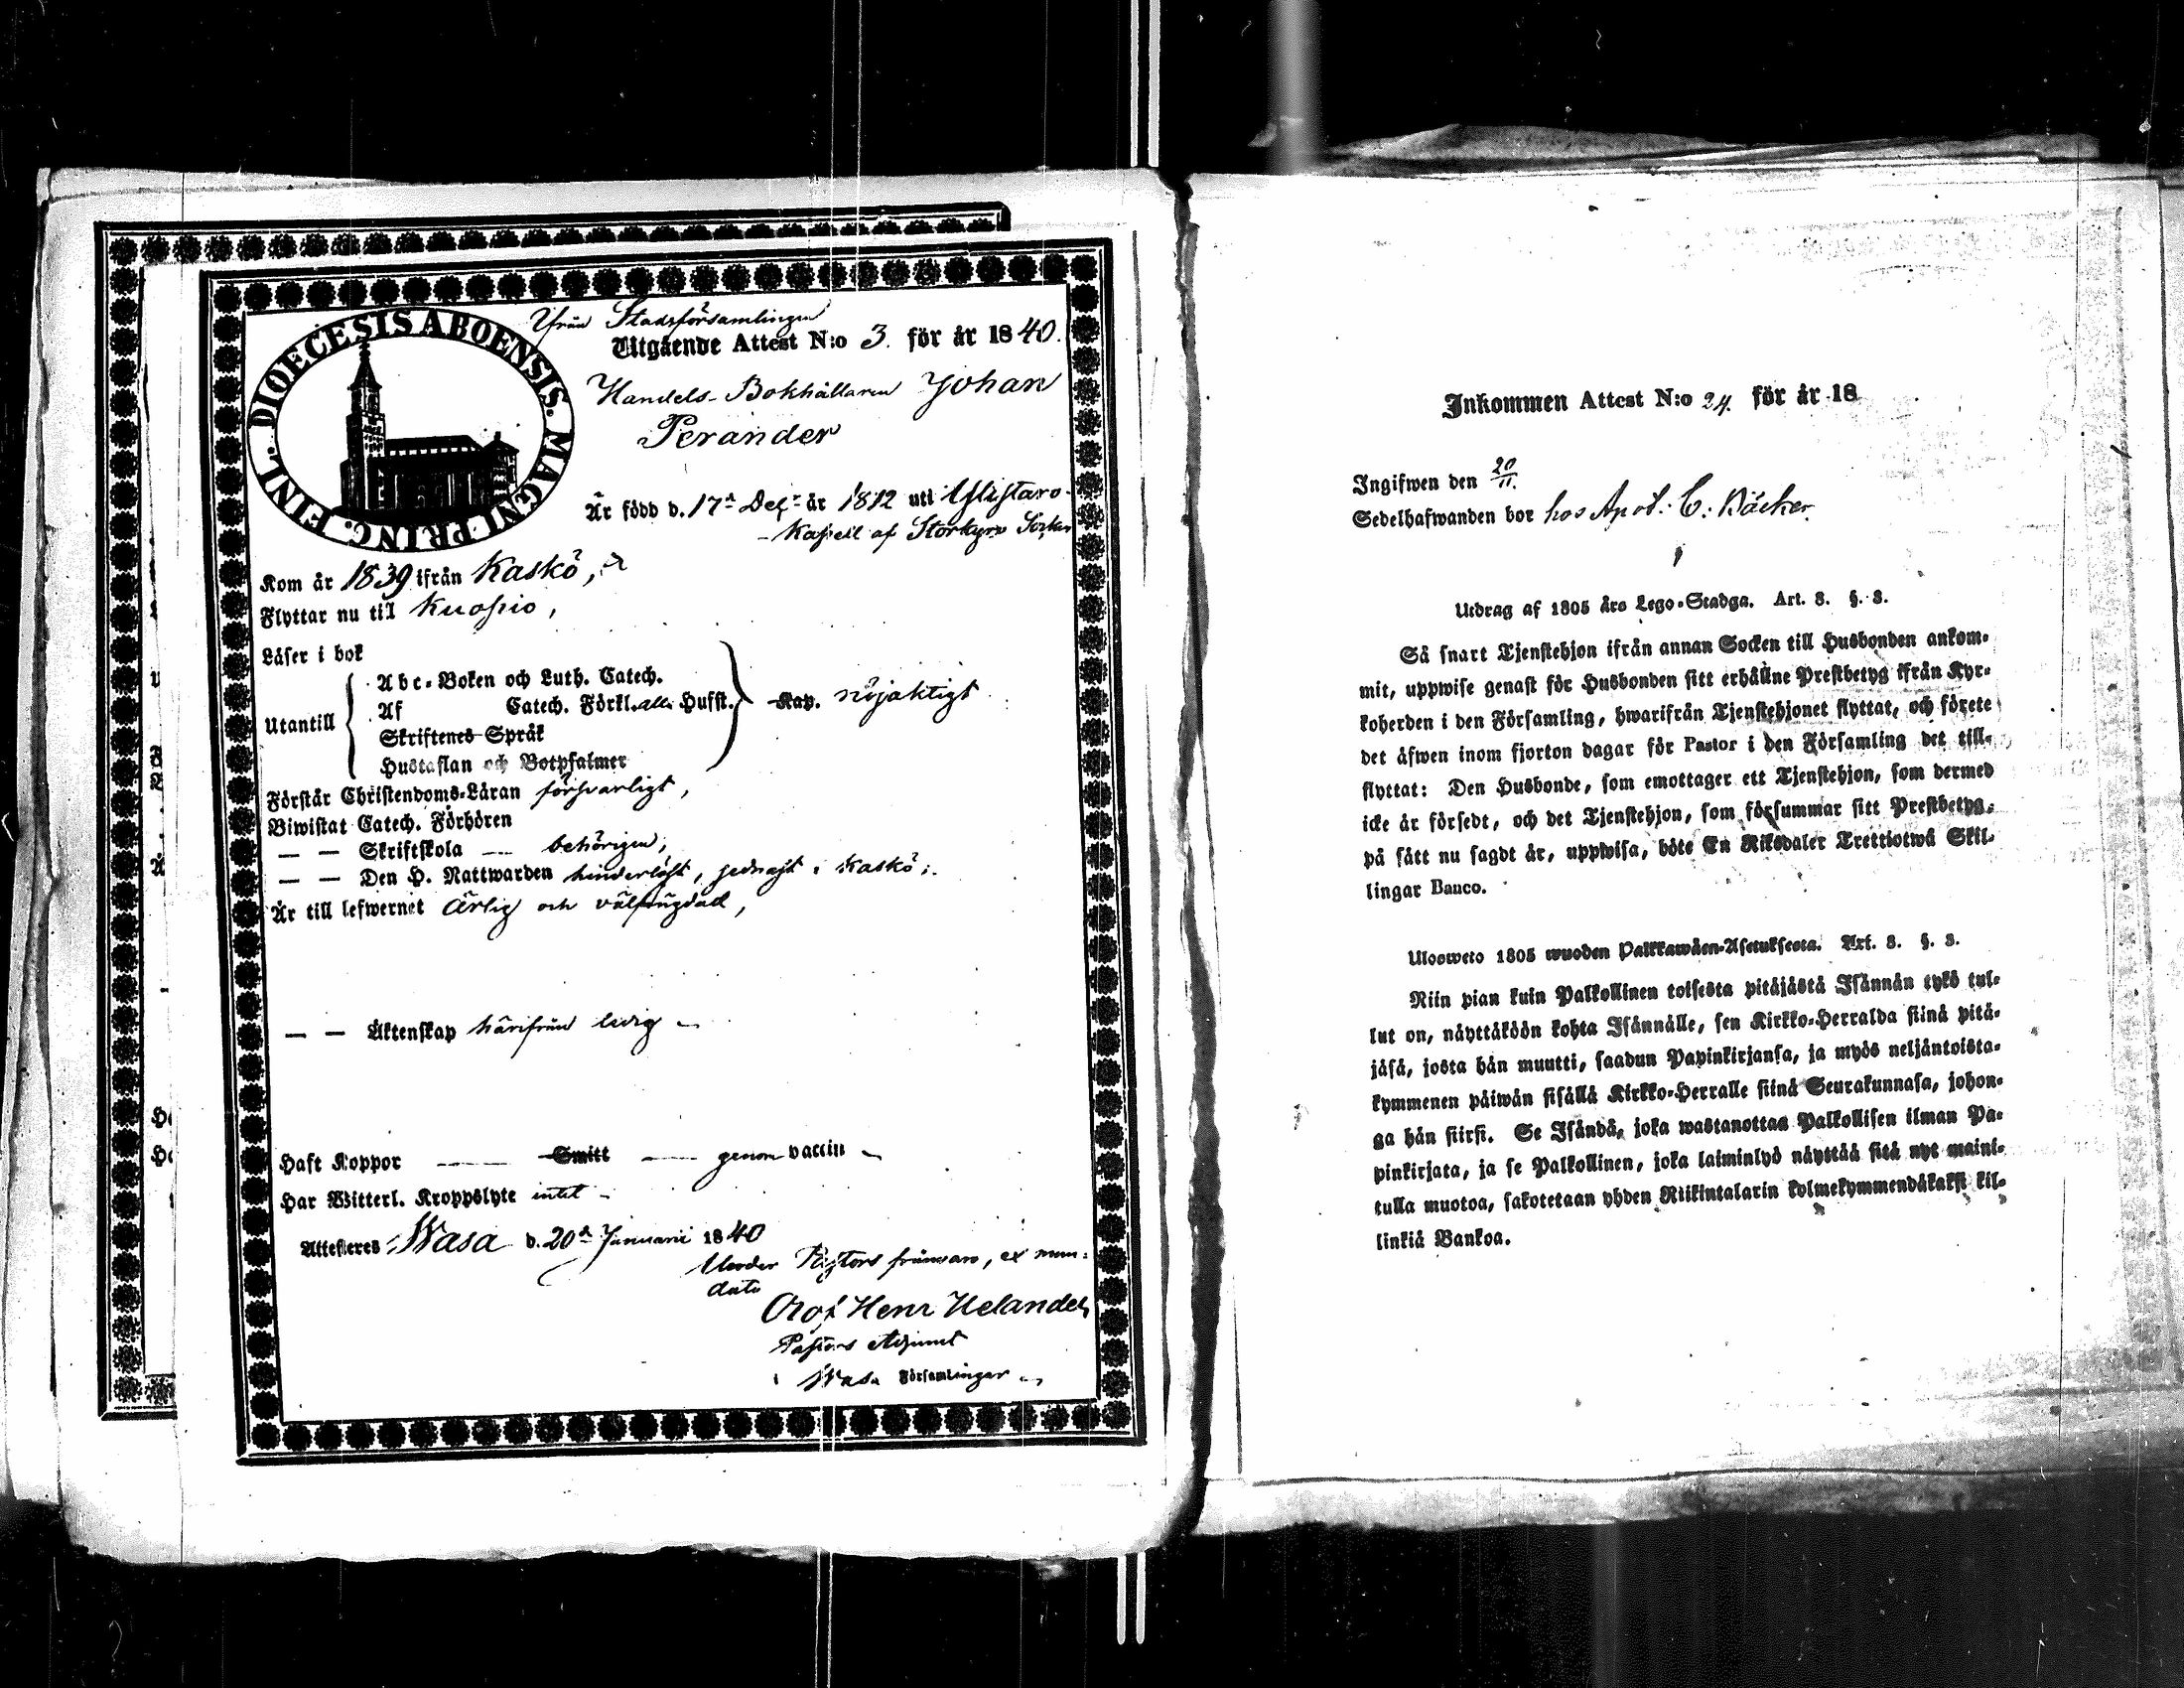 DIOECESIS ABOENSIS. MAGNI PRINC. FINL.
ifrån Stadsförsamlingen
Utgående Attest N:o 3. för år 1840.
Handels-Bokhållaren Johan
Perander
Är född d. 17de Dec: år 1812 uti Ylistaro
Kapell af Storkyro Sockn
Kom år 1839 ifrån Kaskö,
Flyttar nu till Kuopio,
Läser i bok
Utantill
Abc-Boken och Luth. Catech.
Af Catech. Förkl. alla Hufst.
Skriftenes Språk
Hustaflan och Botpsalmer
Kap. nöjaktigt
Förstår Christendoms-Läran försvarligt,
Biwistat Catech. Förhören
— — Skriftskola — behörigen,
— — Den H. Nattwarden hinderlöst, sednast i Kaskö;
Är till lefwernet ärlig och välfrägdad,
— — Äktenskap härifrån ledig —
Haft Koppor — Smitt — genom vaccin —
Har Witterl. Kroppslyte intet —
Attesteres Wasa d. 20de Januarii 1840
Under Pastors frånvaro, ex man-
dato
Olof Henr Helander
Pastors Adjunct
i Wasa Församlingar
Inkommen Attest N:o 24. för år 18
Ingifwen den 20/11.
Sedelhafwanden bor hos Apot. C. Bäcker.
Utdrag af 1805 års Lego-Stadga. Art. 8. §. 3.
Så snart Tjenstehjon ifrån annan Socken till Husbonden ankom-
mit, uppwise genast för Husbonden sitt erhållne Prestbetyg ifrån Kyr-
koherden i den Församling, hwarifrån Tjenstehjonet flyttat, och förete
det äfwen inom fjorton dagar för Pastor i den Församling det till-
flyttat: Den Husbonde, som emottager ett Tjenstehjon, som dermed
icke är försedt, och det Tjenstehjon, som försummar sitt Prestbetyg,
på sätt nu sagdt är, uppwisa, böte En Riksdaler Trettiotwå Skil-
lingar Banco.
Ulosweto 1805 wuoden Palkkawäen-Asetuksesta. Art. 8. §. 3.
Niin pian kuin Palkollinen toisesta pitäjästä Isännän tykö tul-
lut on, näyttäköön kohta Isännälle, sen Kirkko-Herralda siinä pitä-
jäsä, josta hän muutti, saadun Papinkirjansa, ja myös neljäntoista-
kymmenen päiwän sisällä Kirkko-Herralle siinä Seurakunnasa, johon-
ga hän siirsi. Se Isändä, joka wastanottaa Palkollisen ilman Pa-
pinkirjata, ja se Palkollinen, joka laiminlyö näyttää sitä nyt maini-
tulla muotoa, sakotetaan yhden Riikintalarin kolmekymmendäkaksi kil-
linkiä Bankoa.